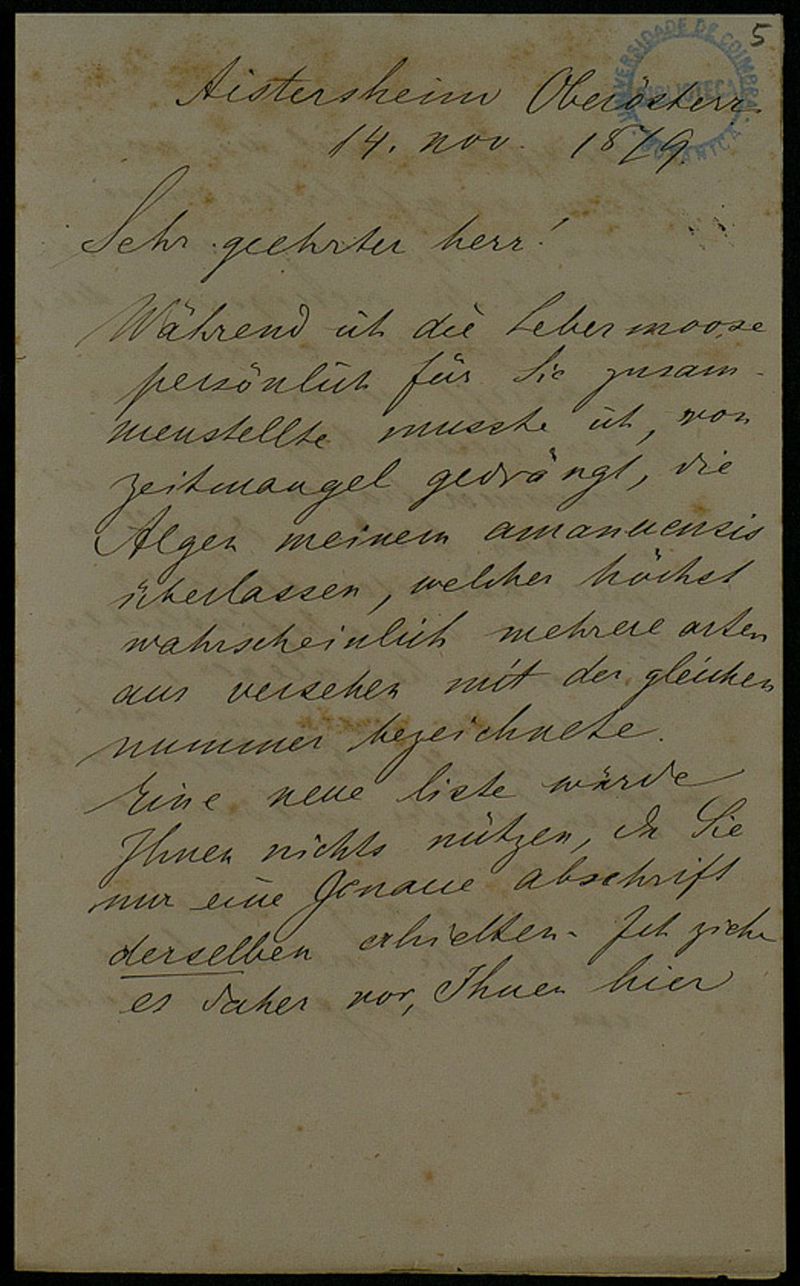 5
UNIVERSIDADE DE COIMBRA
BIBLIOTECA
BOTANICA
Aistersheim Oberösterr.
14. nov. 1879.
Sehr geehrter herr!
Während ich die Lebermoose
persönlich für Sie zusam-
menstellte musste ich, von
zeitmangel gedrängt, die
Algen meinem amanuensis
überlassen, welcher höchst
wahrscheinlich mehrere arten
aus versehen mit der gleichen
nummer bezeichnete.
Eine neue liste würde
Ihnen nichts nützen, da Sie
nur eine genaue abschrift
derselben erhielten. Ich ziehe
es daher vor, Ihnen hier